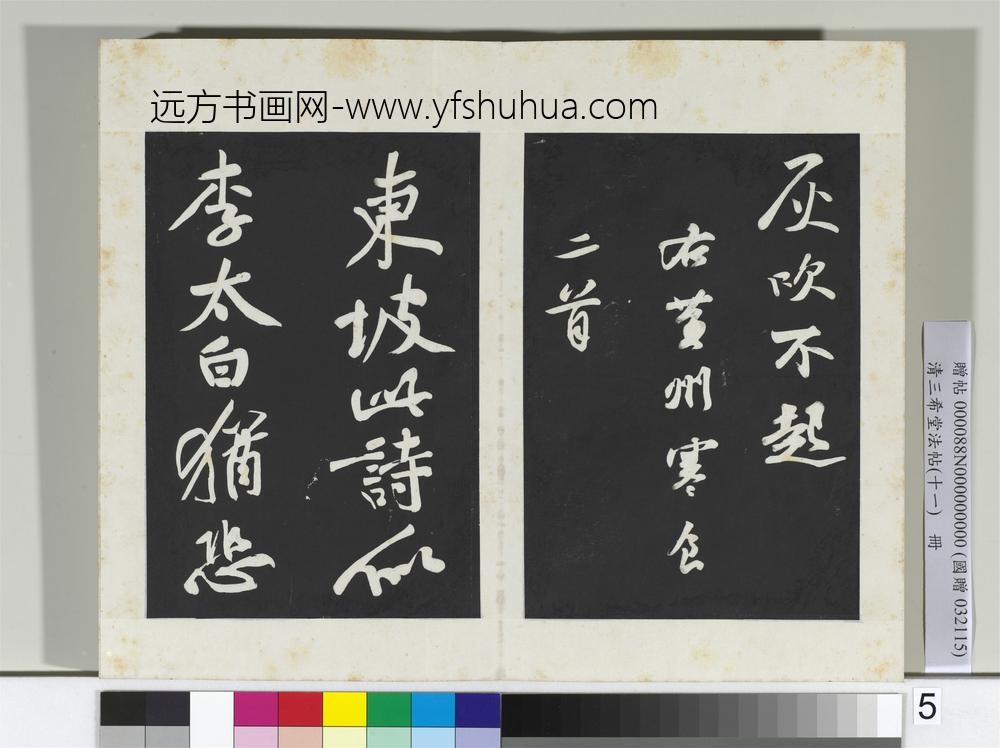 远方书画网-www.yfshuhua.com
灰吹不起
右黄州寒食
二首
東坡此詩似
李太白猶恐
贈帖 000088N000000000 (國贈 032115)
清三希堂法帖(十一) 冊
5